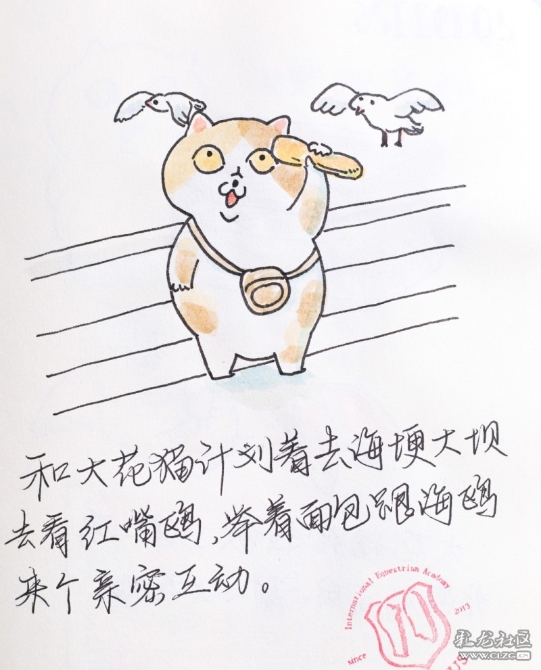 和大花猫计划着去海埂大坝
去看红嘴鸥,举着面包跟海鸥
来个亲密互动。
International Equestrian Academy
since
2013
彩龙社区
www.clzg.cn